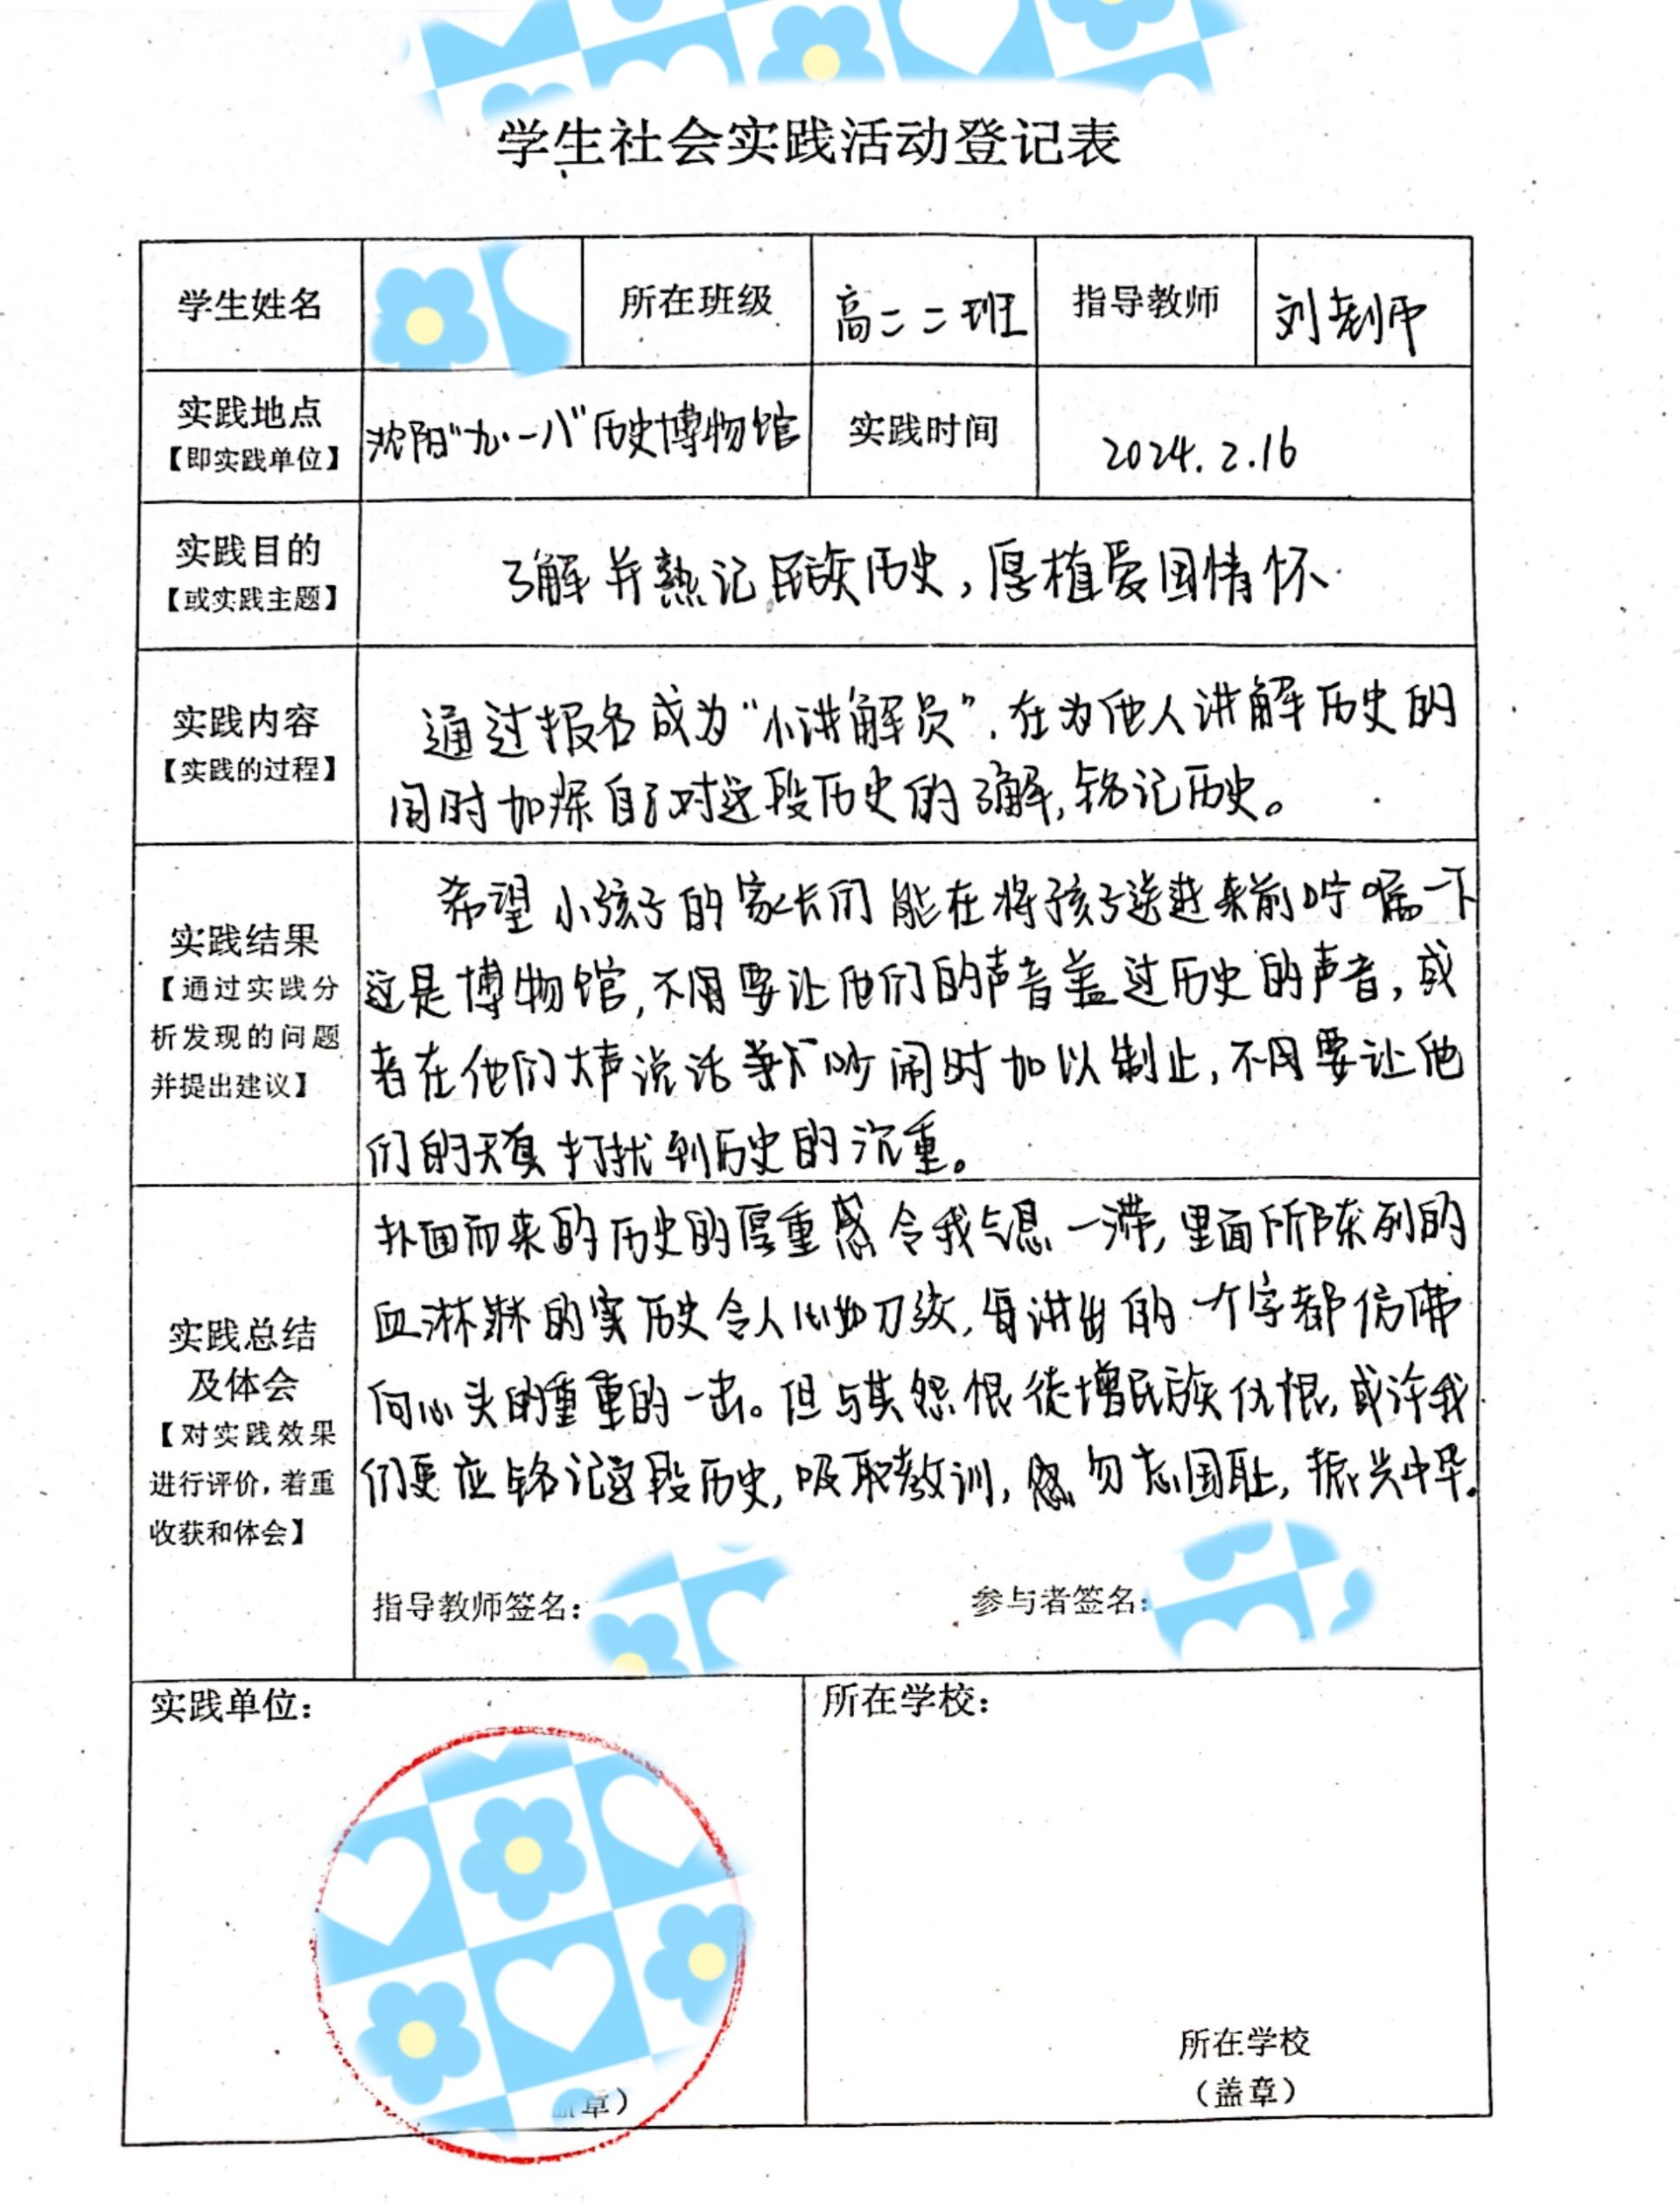 学生社会实践活动登记表
学生姓名 所在班级 高二二班 指导教师 刘老师
实践地点 沈阳“九·一八”历史博物馆 实践时间 2024.2.16
【即实践单位】
实践目的 了解并熟记民族历史,厚植爱国情怀.
【或实践主题】
实践内容
【实践的过程】
通过报名成为“小讲解员”,在为他人讲解历史的
同时加深自己对这段历史的了解,铭记历史。
实践结果
【通过实践分
析发现的问题
并提出建议】
希望小孩子的家长们能在将孩子送进来前叮嘱一下
这是博物馆,不要让他们的声音盖过历史的声音,或
者在他们大声说话吵闹时加以制止,不要让他
们的天真打扰到历史的沉重。
实践总结
及体会
【对实践效果
进行评价,着重
收获和体会】
扑面而来的历史的厚重感令我气息一滞,里面所陈列的
血淋淋的实历史令人心如刀绞,每讲出的一个字都仿佛
向心头的重重的一击。但与其怨恨徒增民族仇恨,或许我
们更应铭记这段历史,吸取教训,勿忘国耻,振兴中华。
指导教师签名: 参与者签名:
实践单位: 所在学校:
所在学校
章) (盖章)